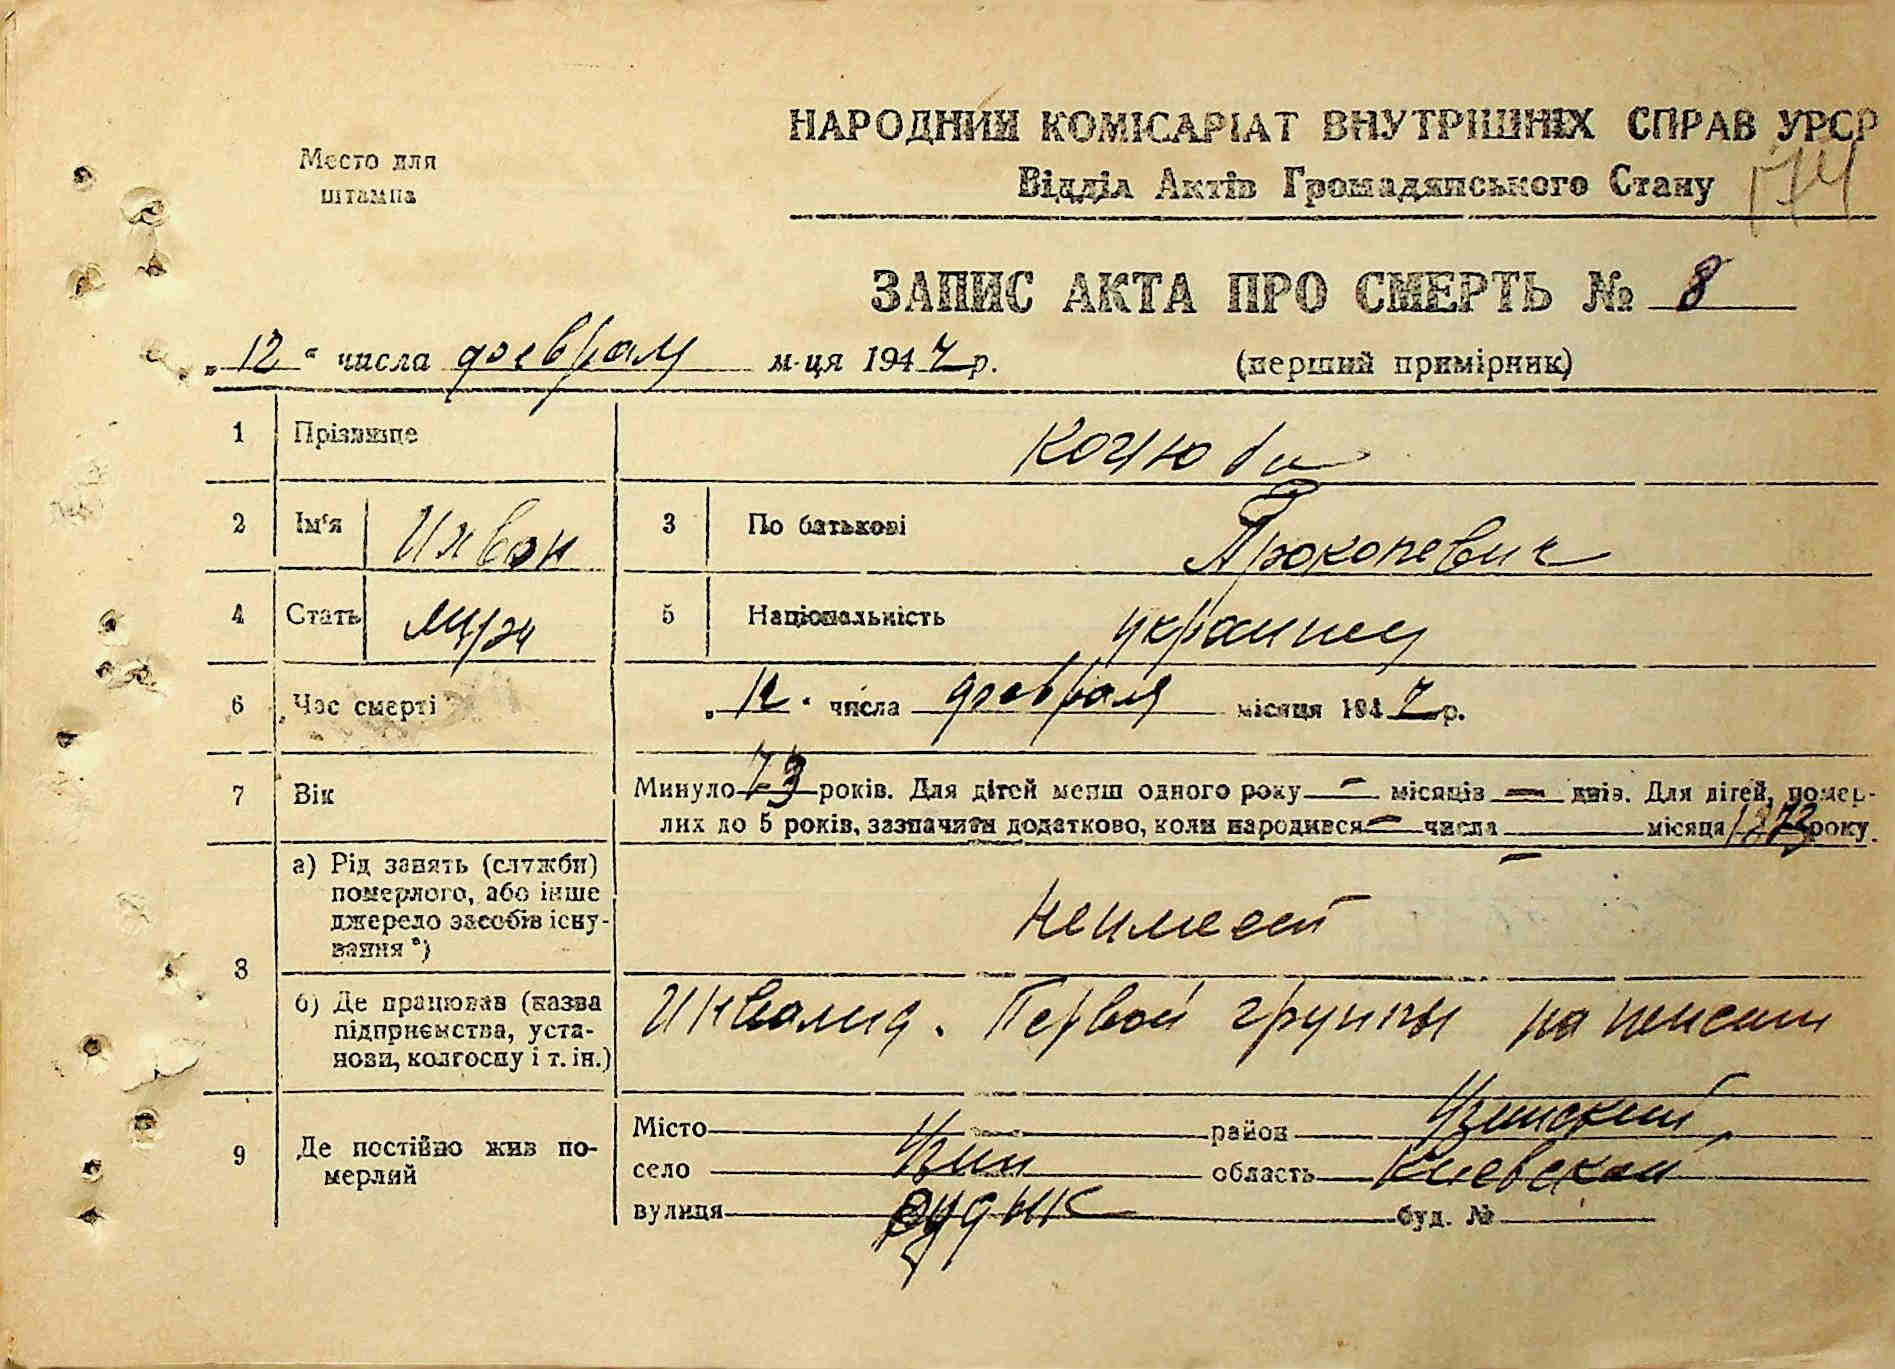 НАРОДНИЙ КОМІСАРІАТ ВНУТРІШНІХ СПРАВ УРСР
Место для
штампа
Відділ Актів Громадянського Стану
174
ЗАПИС АКТА ПРО СМЕРТЬ № 8
„12“ числа февраля м-ця 1947 р. (перший примірник)
1 Прізвище Коцюби
2 Ім'я 3 По батькові Прокопевич
4 Стать муж 5 Національність украинец
6 Час смерті „12“ числа февраля місяця 1947 р.
7 Вік Минуло 73 років. Для дітей менш одного року — місяців — днів. Для дітей, помер-
лих до 5 років, зазначити додатково, коли народився — числа місяця 1873 року.
8 а) Рід занять (служби)
померлого, або інше
джерело засобів існу-
вання*) неимеет
б) Де працював (назва
підприємства, уста-
нови, колгоспу і т. ін.) Инвалид. Первой группы на пенсии
9 Де постійно жив по-
мерлий
Місто район Узинский
село Узин область Киевской
вулиця буд. №